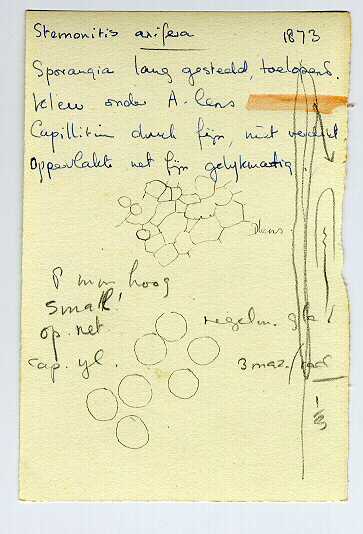 Stemonitis axifera 1873
Sporangia lang gesteeld, toelopend.
kleur onder A-lens
Capillitium donch fijn, niet verdikt
oppervlakte net fijn gelijkmatig.
8 mm hoog
small,
op. net regelm. gla
cap. yl. 3 maz./rad